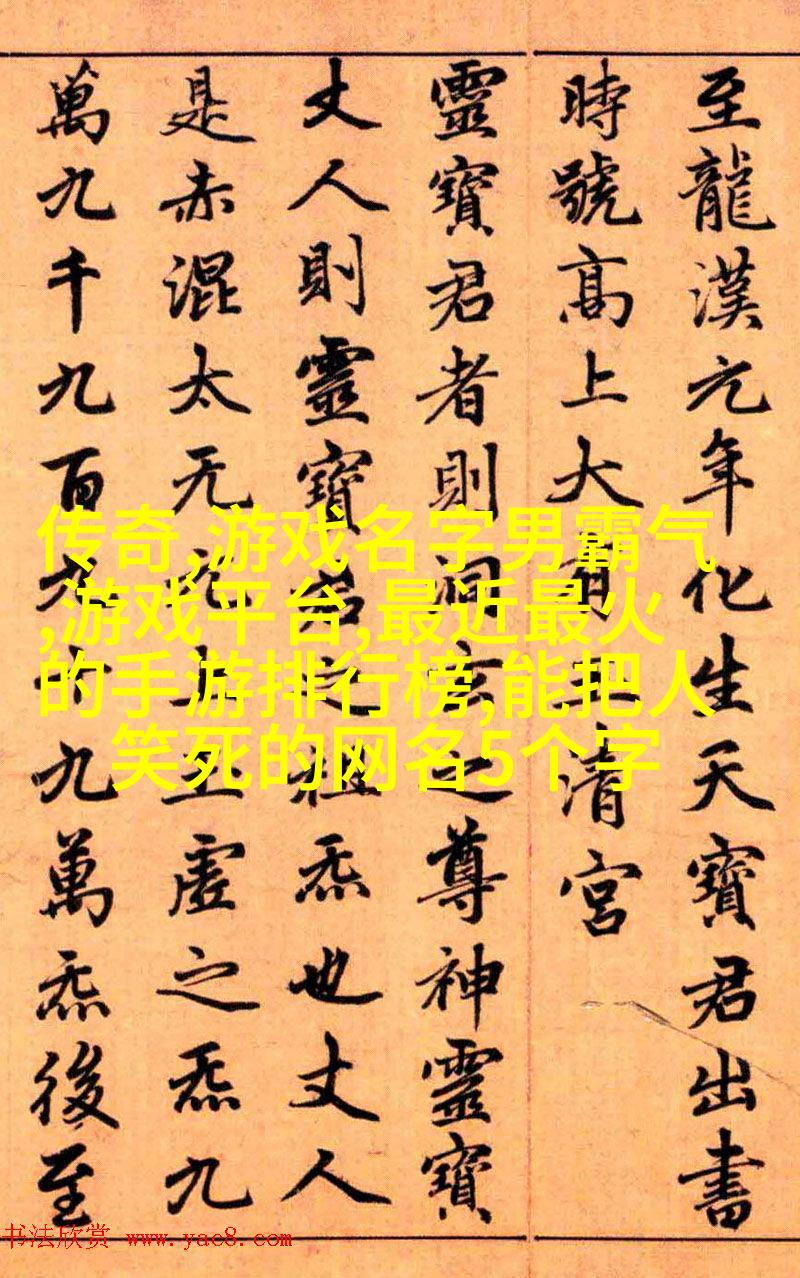 至龍漢元年化生天寶君出書
時號高上大有清宮
靈寶君者則洞玄之尊神靈寶
丈人則靈寶君之祖炁也丈人
是赤混太无上玉虛之炁九
萬九千九百九十九萬炁後至
传奇,游戏名字男霸气
,游戏平台,最近最火
的手游排行榜,能把人
笑死的网名5个字
书法欣赏 www.yac8.com